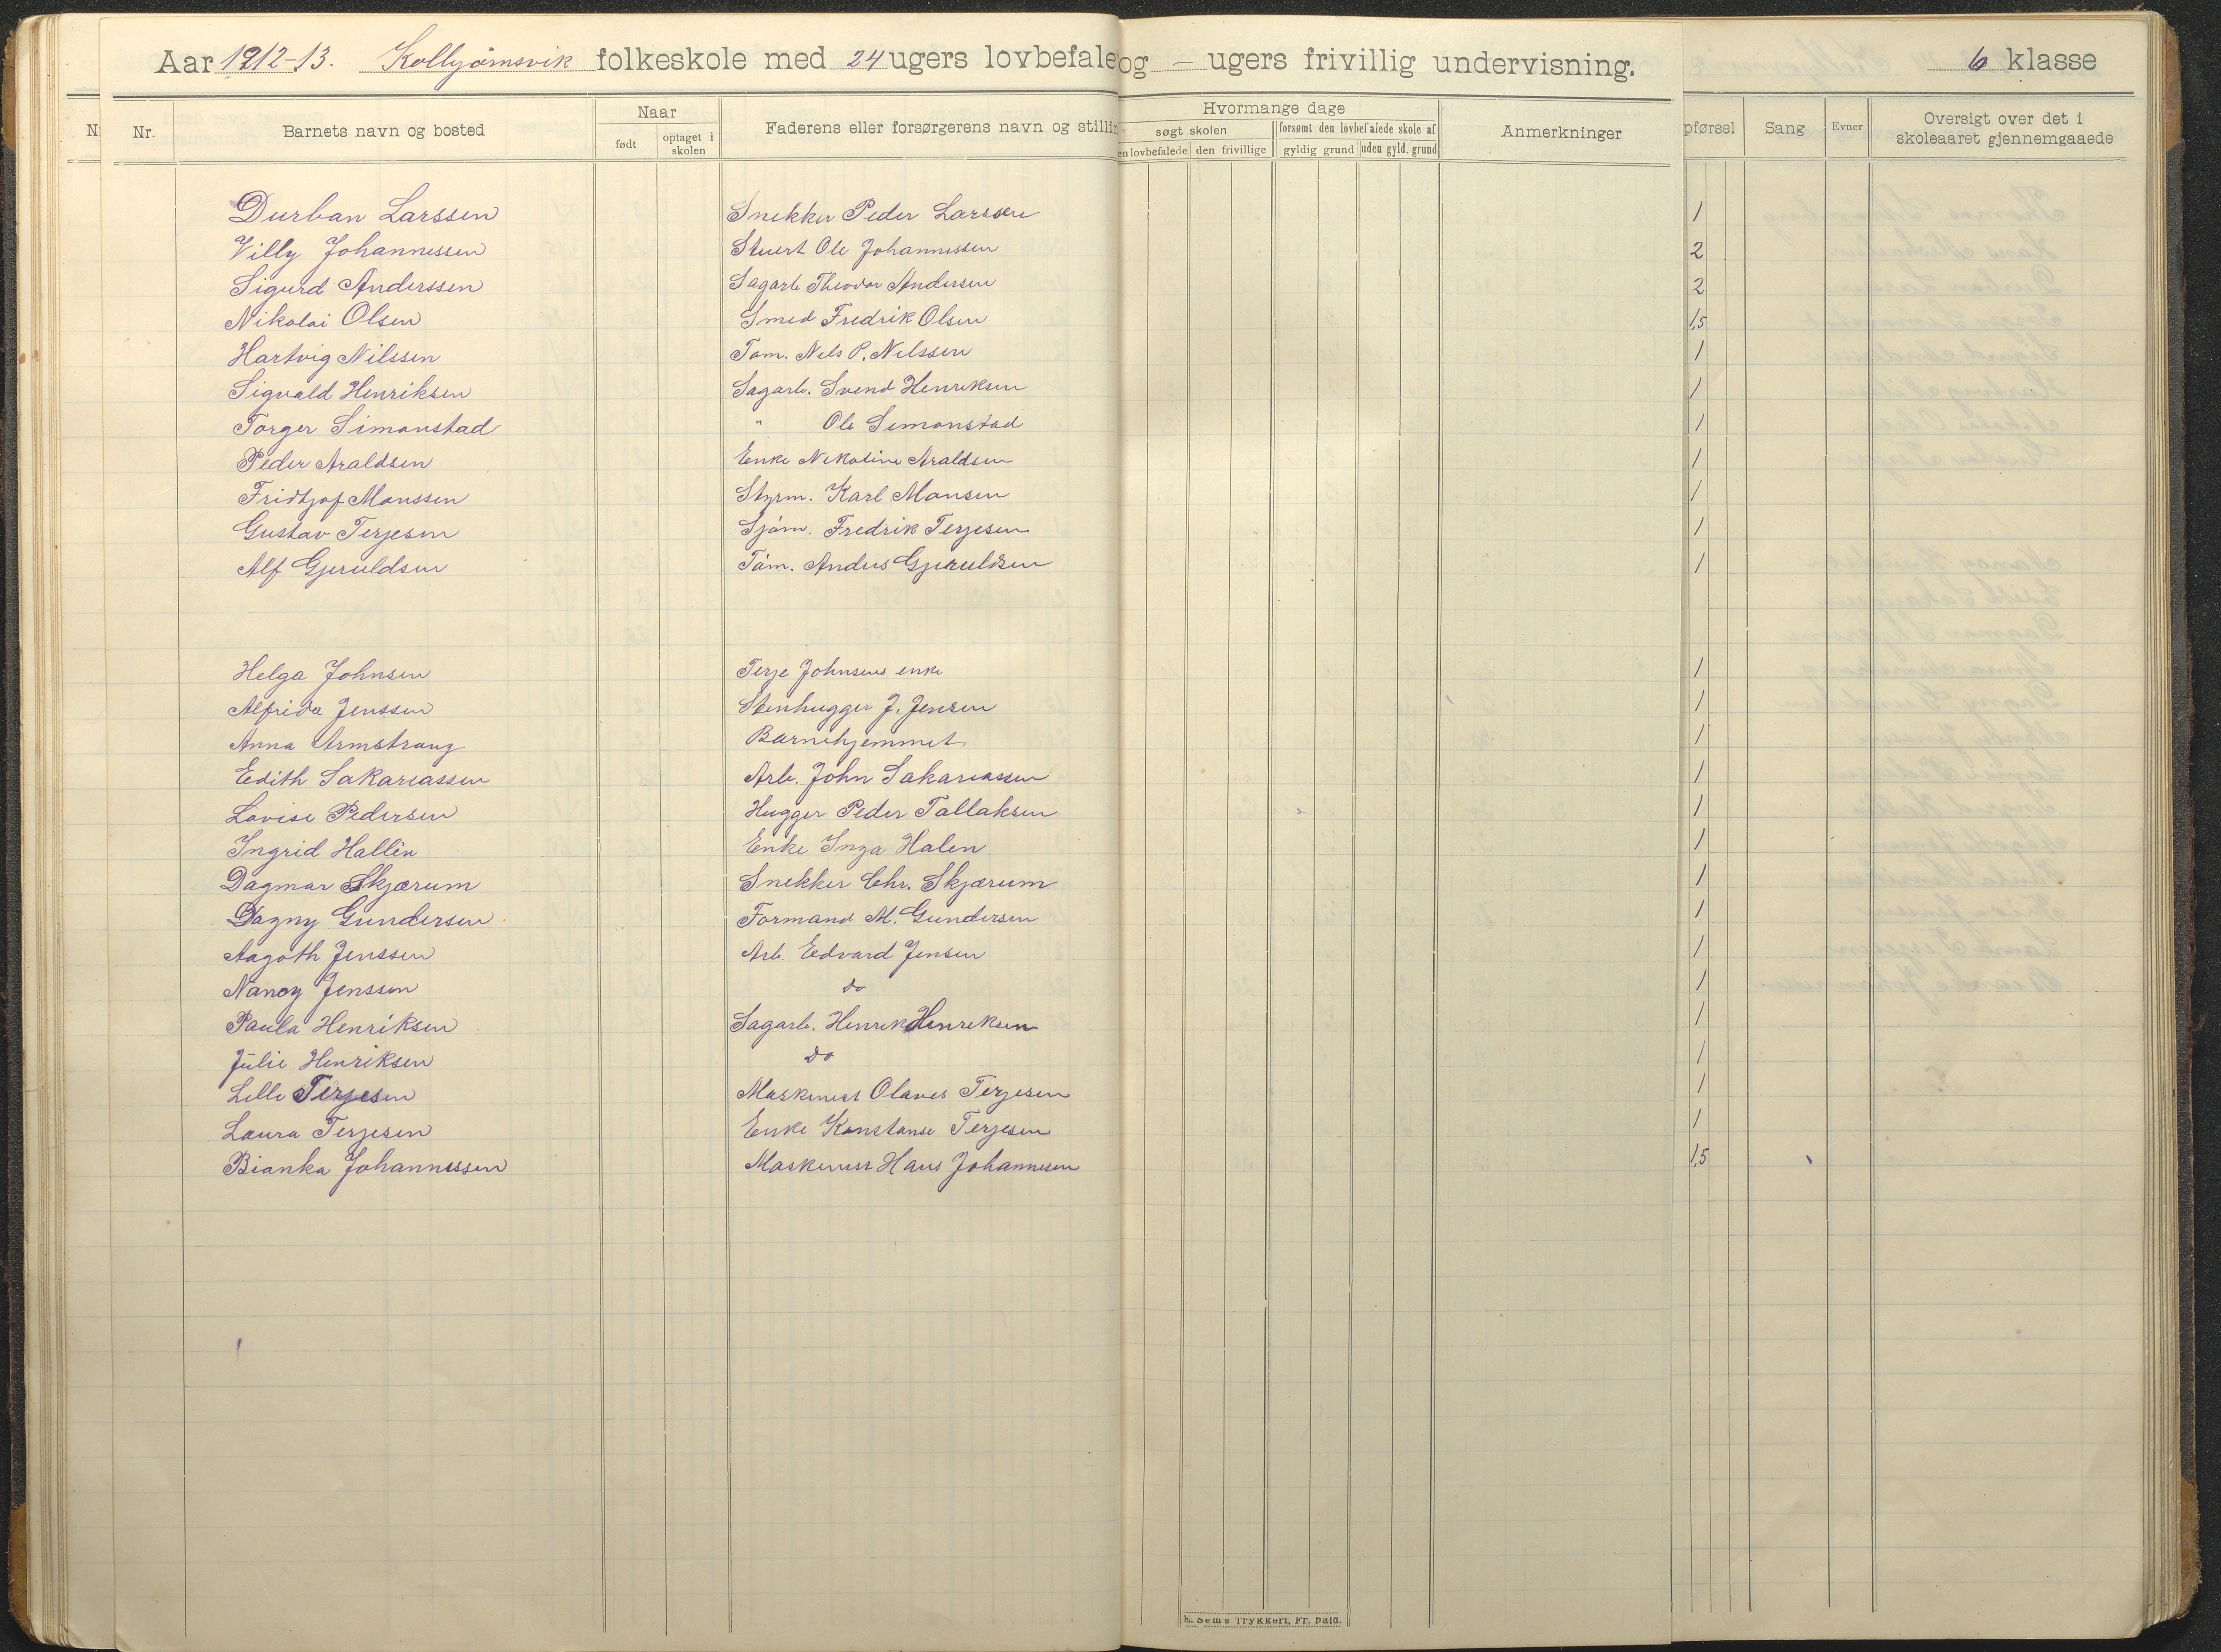 Aar 1912-13. Kolbjörnsvik folkeskole med 24 ugers lovbefale og – ugers frivillig undervisning. 6 klasse
Nr. Barnets navn og bosted Naar Faderens eller forsørgerens navn og stillin Hvormange dage Anmerkninger pførsel Sang Evner Oversigt over det i skoleaaret gjennemgaaede
født optaget i skolen søgt skolen forsømt den lovbefalede skole af
en lovbefalede den frivillige gyldig grund uden gyld. grund
Durban Larssen Snekker Peder Larssen 1
Villy Johannessen Stuert Ole Johannessen 2
Sigurd Anderssen Sagarb Theodor Andersen 2
Nikolai Olsen Smed Fredrik Olsen 1,5
Hartvig Nilssen Töm. Nils P. Nilssen 1
Sigvald Henriksen Sagarb. Svend Henriksen 1
Torger Simonstad " Ole Simonstad 1
Peder Araldsen Enke Nikoline Araldsen 1
Fridtjof Monssen Styrm. Karl Monsen 1
Gustav Terjesen Sjöm. Fredrik Terjesen 1
Alf Gjeruldsen Töm. Anders Gjeruldsen 1
Helga Johnsen Terje Johnsens enke 1
Alfrida Jenssen Stenhugger J. Jensen 1
Anna Armstrong Barnehjemmet 1
Edith Sakariassen Arb. John Sakariassen 1
Lovise Pedersen Hugger Peder Tallaksen 1
Ingrid Hallin Enke Inga Halen 1
Dagmar Skjærum Snekker Chr. Skjærum 1
Dagny Gundersen Formand M. Gundersen 1
Aagoth Jenssen Arb. Edvard Jensen 1
Nancy Jenssen do 1
Paula Henriksen Sagarb. Henrik Henriksen 1
Julie Henriksen do 1
Lilli Terjesen Maskinist Olaves Terjesen 1
Laura Terjesen Enke Konstanse Terjesen 1
Bianka Johannessen Maskinist Hans Johannesen 1,5
E. Sems Trykkeri, Fr. hald.